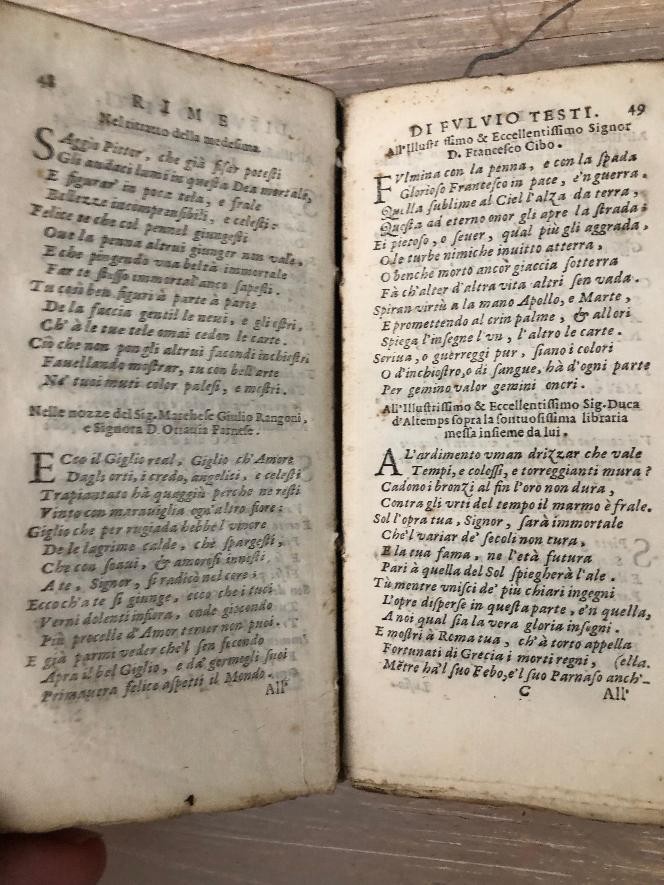 48
RIME
Nel ritratto della medesima.
SAggio Pittor, che già fisar potesti
Gli audaci lumi in questa Dea mortale,
E figurar' in poca tela, e frale
Bellezze incomprensibili, e celesti:
Felice te che col pennel giungesti
Oue la penna altrui giunger non vale,
E che pingendo vna beltà immortale
Far te stesso immortal'anco sapesti.
Tu così ben figuri à parte à parte
De la faccia gentil le neui, e gli ostri,
Ch' à le tue tele omai cedon le carte.
Ciò che non pon gli altrui facondi inchiostri
Fauellando mostrar, tu con bell'arte
Ne' tuoi muti color palesi, e mostri.
Nelle nozze del Sig. Marchese Giulio Rangoni,
e Signora D. Ottauia Farnese.
ECco il Giglio real, Giglio ch'Amore
Dagli orti, i credo, angelici, e celesti
Trapiantato hà quaggiù perche ne resti
Vinto con marauiglia ogn'altro fiore:
Giglio che per rugiada hebbe l'vmore
De le lagrime calde, che spargesti,
Che con soaui, & amorosi innesti
A te, Signor, si radicò nel core;
Ecco ch'a te si giunge, ecco che i tuoi
Verni dolenti infiora, onde giocondo
Più procelle d'Amor temer non puoi.
E già parmi veder che'l sen fecondo
Apra il bel Giglio, e da' germogli suoi
Primauera felice aspetti il Mondo.
All'
DI FVLVIO TESTI. 49
All'Illustrissimo & Eccellentissimo Signor
D. Francesco Cibo.
FVlmina con la penna, e con la spada
Glorioso Francesco in pace, e'n guerra.
Quella sublime al Ciel l'alza da terra,
Questa ad eterno onor gli apre la strada;
Ei pietoso, o seuer, qual più gli aggrada,
O le turbe nimiche inuitto atterra,
O benche morto ancor giaccia sotterra
Fà ch'alter d'altra vita altri sen vada.
Spiran virtù a la mano Apollo, e Marte,
E promettendo al crin palme, & allori
Spiega l'insegne l'vn, l'altro le carte.
Scriua, o guerreggi pur, siano i colori
O d'inchiostro, o di sangue, hà d'ogni parte
Per gemino valor gemini onori.
All'Illustrissimo & Eccellentissimo Sig. Duca
d'Altemps sopra la sontuosissima libraria
messa insieme da lui.
AL'ardimento vman drizzar che vale
Tempi, e colossi, e torreggianti mura?
Cadono i bronzi al fin l'oro non dura,
Contra gli vrti del tempo il marmo è frale.
Sol l'opra tua, Signor, sarà immortale
Che'l variar de' secoli non cura,
E la tua fama, ne l'età futura
Pari à quella del Sol spiegherà l'ale.
Tù mentre vnisci de' più chiari ingegni
L'opre disperse in questa parte, e'n quella,
A noi qual sia la vera gloria insegni.
E mostri à Roma tua, ch'à torto appella
Fortunati di Grecia i morti regni, (ella.
Mẽtre ha'l suo Febo, e'l suo Parnaso anch'-
C
All'